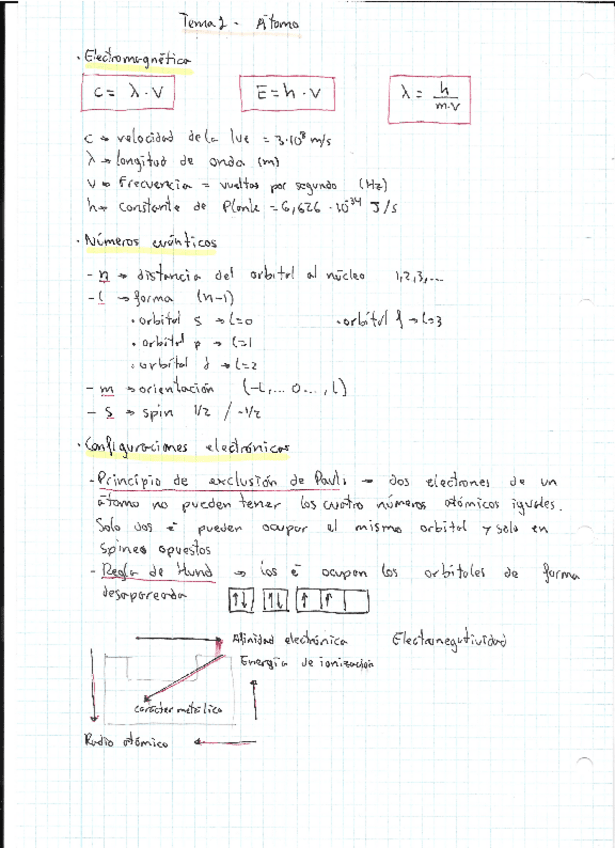 Tema 1 - Átomo
· Electromagnética
c = λ · ν
E = h · ν
λ = h / m·v
c → velocidad de la luz = 3·10⁸ m/s
λ → longitud de onda (m)
ν → Frecuencia = vueltas por segundo (Hz)
h → constante de Plank = 6,626 · 10⁻³⁴ J/s
· Números cuánticos
- n → distancia del orbital al núcleo 1,2,3,...
- l → forma (n-1)
· orbital s → l=0 · orbital f → l=3
· orbital p → l=1
· orbital d → l=2
- m → orientación (-l,...0...,l)
- s → spin 1/2 / -1/2
· Configuraciones electrónicas
- Principio de exclusión de Pauli → dos electrones de un
átomo no pueden tener los cuatro números atómicos iguales.
Solo dos e⁻ pueden ocupar el mismo orbital y solo en
spines opuestos
- Regla de Hund → los e⁻ ocupan los orbitales de forma
desapareada ↑↓ ↑↓ ↑ ↑
Afinidad electrónica Electronegatividad
Energía de ionización
carácter metálico
Radio atómico